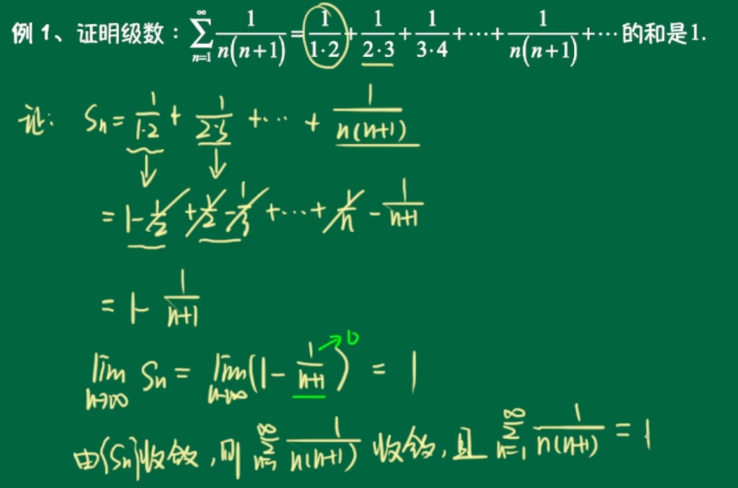 例 1、证明级数：∑_{n=1}^{∞} 1/(n(n+1)) = 1/(1·2) + 1/(2·3) + 1/(3·4) + ⋯ + 1/(n(n+1)) + ⋯ 的和是1.
证: Sn = 1/(1·2) + 1/(2·3) + ⋯ + 1/(n(n+1))
= 1 - 1/2 + 1/2 - 1/3 + ⋯ + 1/n - 1/(n+1)
= 1 - 1/(n+1)
lim_{n→∞} Sn = lim_{n→∞} (1 - 1/(n+1)) = 1
0
由{Sn}收敛, 则 ∑_{n=1}^{∞} 1/(n(n+1)) 收敛, 且 ∑_{n=1}^{∞} 1/(n(n+1)) = 1